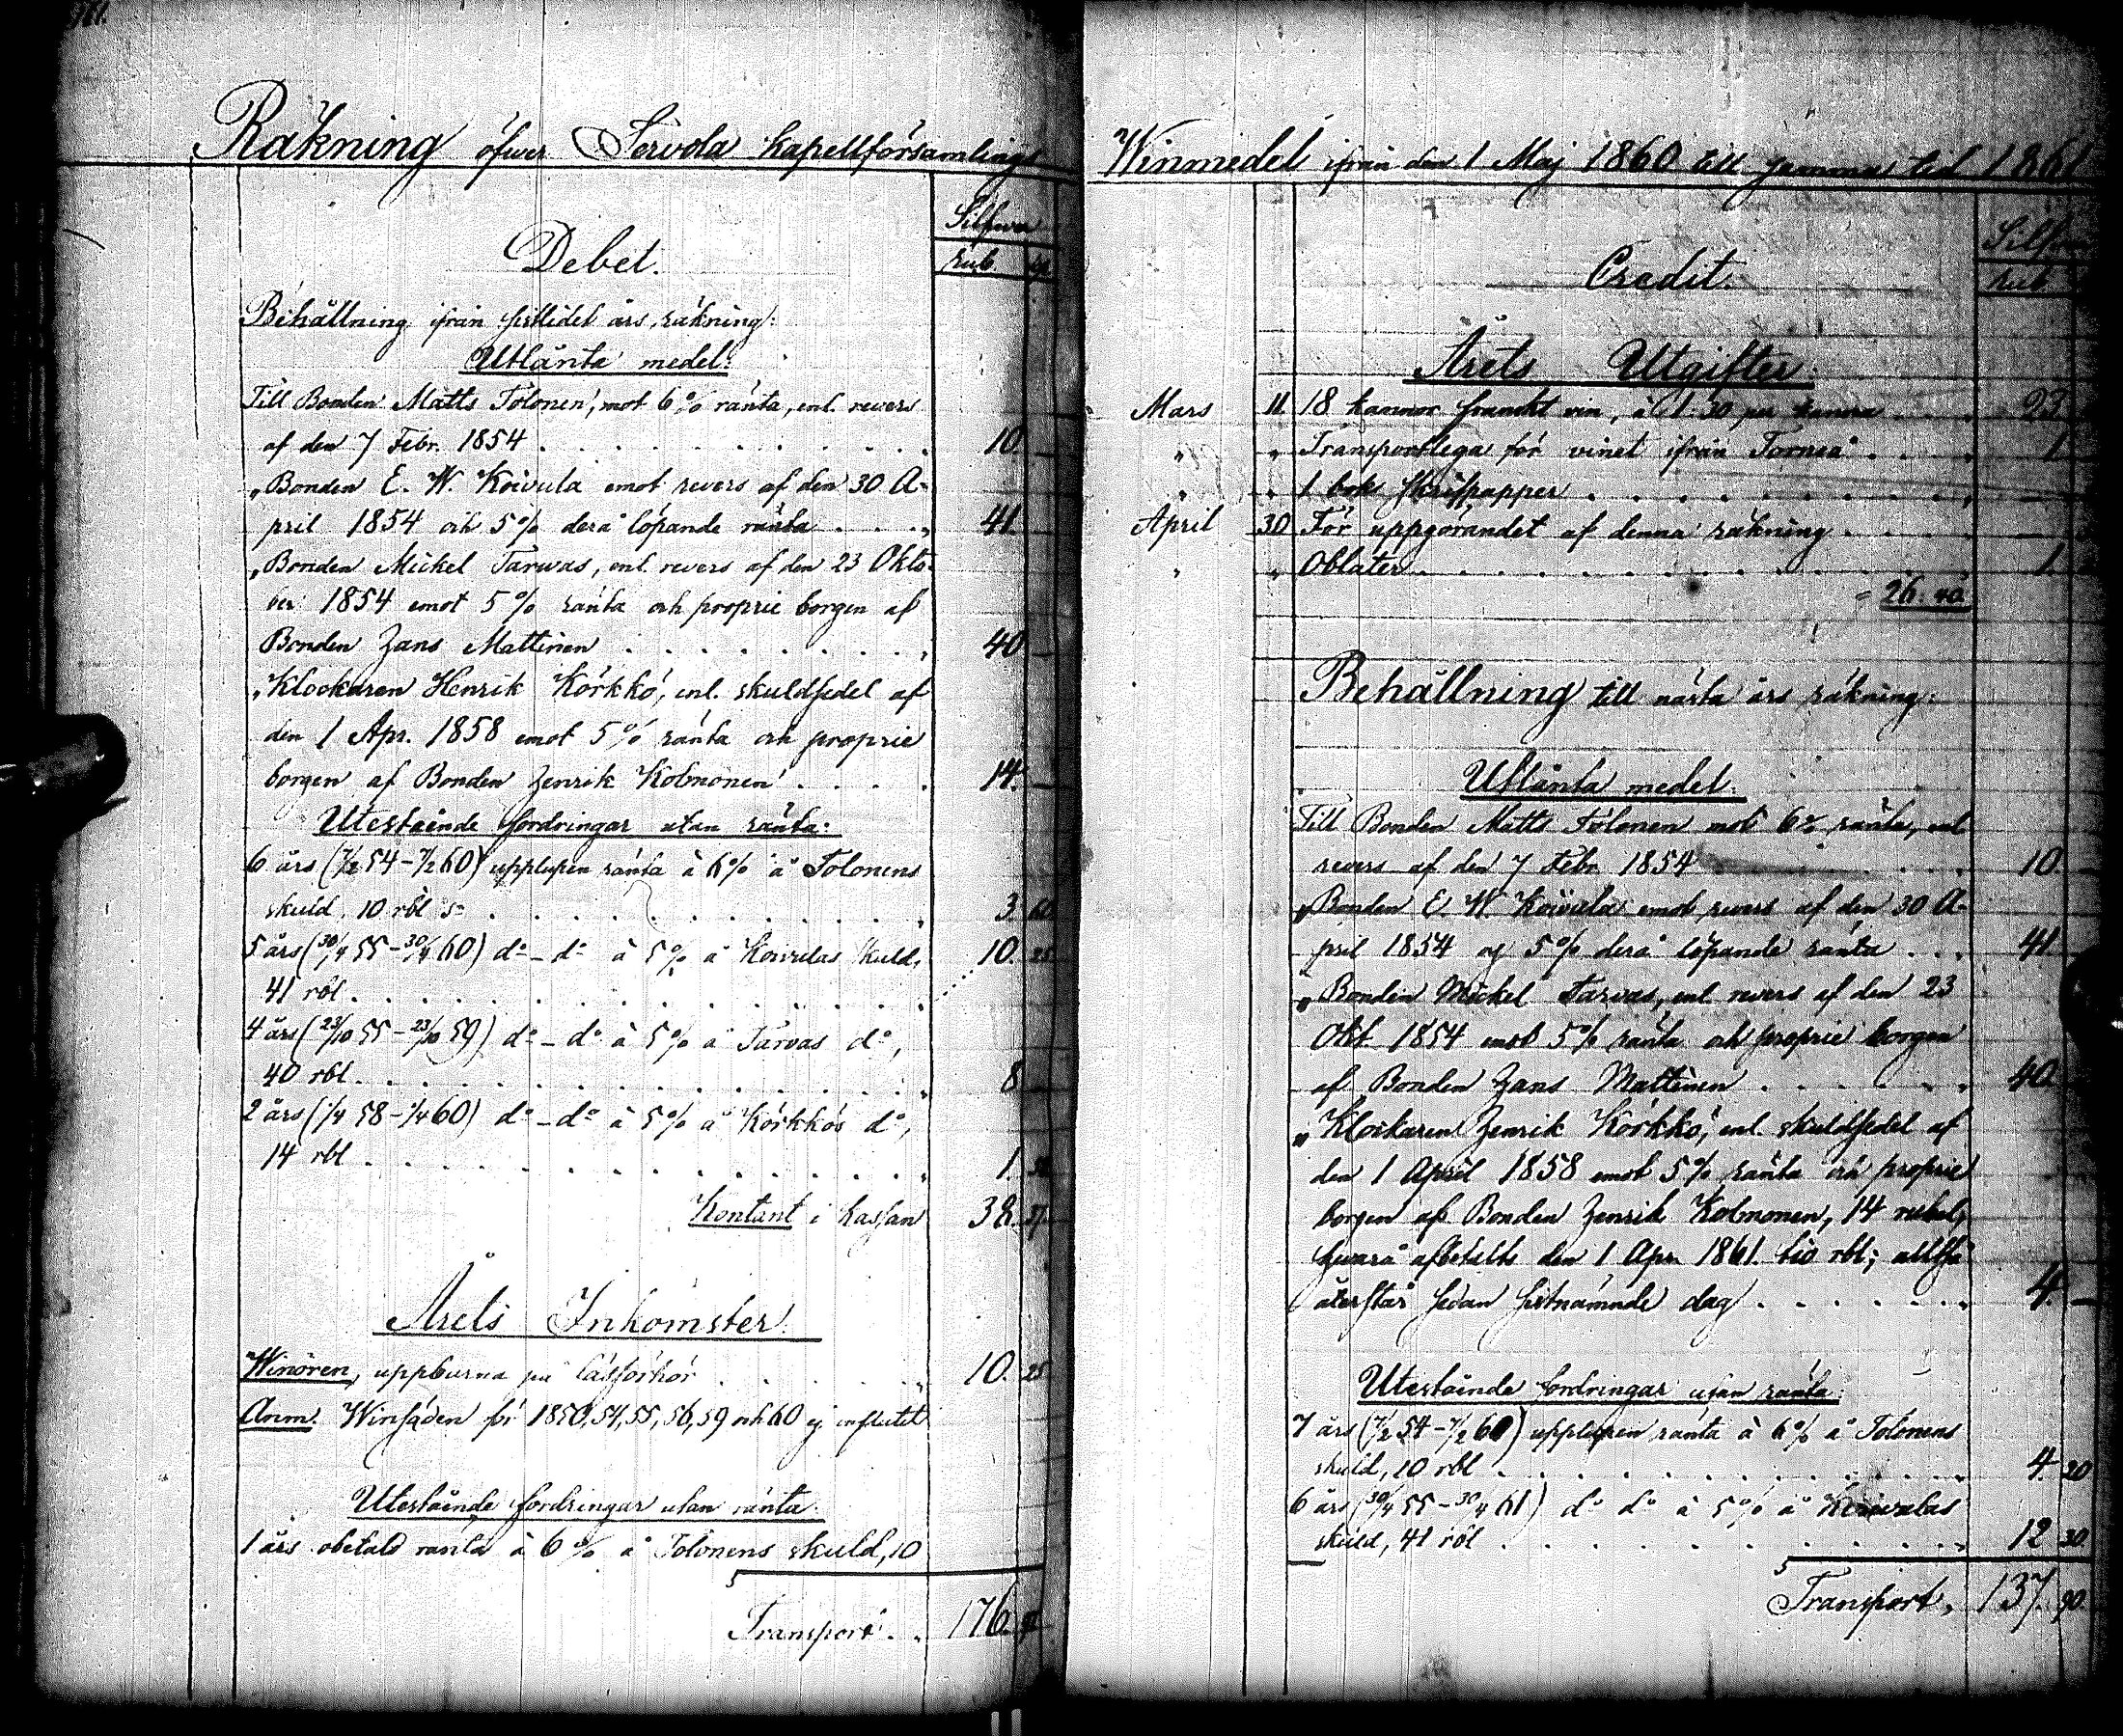 Räkning öfwer Terwola Kapellförsamlings
Silfwer
Debet.
rub. kp.
Behållning ifrån sistlidet års räkning:
Utlånta medel:
Till Bonden Matts Tolonen, mot 6% ränta, enl. revers
af den 7 Febr. 1854 . . . 10. —
„ Bonden E. W. Koivula emot revers af den 30 A-
pril 1854 och 5% derå löpande ränta . . . 41. —
„ Bonden Mickel Tarwas, enl. revers af den 23 Okto-
ber 1854 emot 5% ränta och proprie borgen af
Bonden Hans Mattinen . . . 40 —
„ Klockaren Henrik Körkkö, enl. skuldsedel af
den 1 Apr. 1858 emot 5% ränta och proprie
borgen af Bonden Henrik Kolmonen . . . 14. —
Utestående fordringar utan ränta:
6 års (7/2 54 – 7/2 60) upplupen ränta à 6% å Tolonens
skuld, 10 rbl s. . . . 3. 60
5 års (30/4 55 – 30/4 60) do – do à 5% å Koivulas skuld, 10. 25
41 rbl . . .
4 års (23/10 55 – 23/10 59) do – do à 5% å Tarvas do,
40 rbl . . . 8 —
2 års (1/4 58 – 1/4 60) do – do à 5% å Körkkös do,
14 rbl . . . 1.
Kontant i Kassan 38.
Årets Inkomster.
Winören, uppburna på läsförhör . . . 10. 25
Anm. Winsäden för 1850, 54, 55, 56, 59 och 60 ej influtit
Utestående fordringar utan ränta.
1 års obetald ränta à 6% å Tolonens skuld, 10
Transport . . 176.
Winmedel ifrån den 1 Maj 1860 till samma tid 1861
Silfwer
Credit.
rub.
Årets Utgifter.
Mars 11. 18 kannor franskt vin, à 1. 30 per kanna . . . 23
„ „ Transportlega för vinet ifrån Torneå . . . 1.
„ „ 1 bok skrifpapper . . .
April 30 För uppgörandet af denna räkning . . .
„ „ Oblater . . . 1.
= 26: 40.
Behållning till nästa års räkning:
Utlånta medel.
Till Bonden Matts Tolonen mot 6% ränta, enl
revers af den 7 Febr. 1854 . . . 10. —
„ Bonden E. W. Koivula emot revers af den 30 A-
pril 1854 och 5% derå löpande ränta . . . 41.
„ Bonden Mickel Tarvas, enl. revers af den 23
Okt 1854 emot 5% ränta och proprie borgen
af Bonden Hans Mattinen . . . 40.
„ Klockaren Henrik Körkkö, enl. skuldsedel af
den 1 April 1858 emot 5% ränta och proprie
borgen af Bonden Henrik Kolmonen, 14 rubel,
hwarå afbetalts den 1 Apr. 1861. tio rbl; alltså
återstår sedan sistnämnde dag . . . 4. —
Utestående fordringar utan ränta.
7 års (7/2 54 – 7/2 60) upplupen ränta à 6% å Tolonens
skuld, 10 rbl . . . 4 20
6 års (30/4 55 – 30/4 61) do do à 5% å Koivulas
skuld, 41 rbl . . . 12 30
Transport, 137. 90